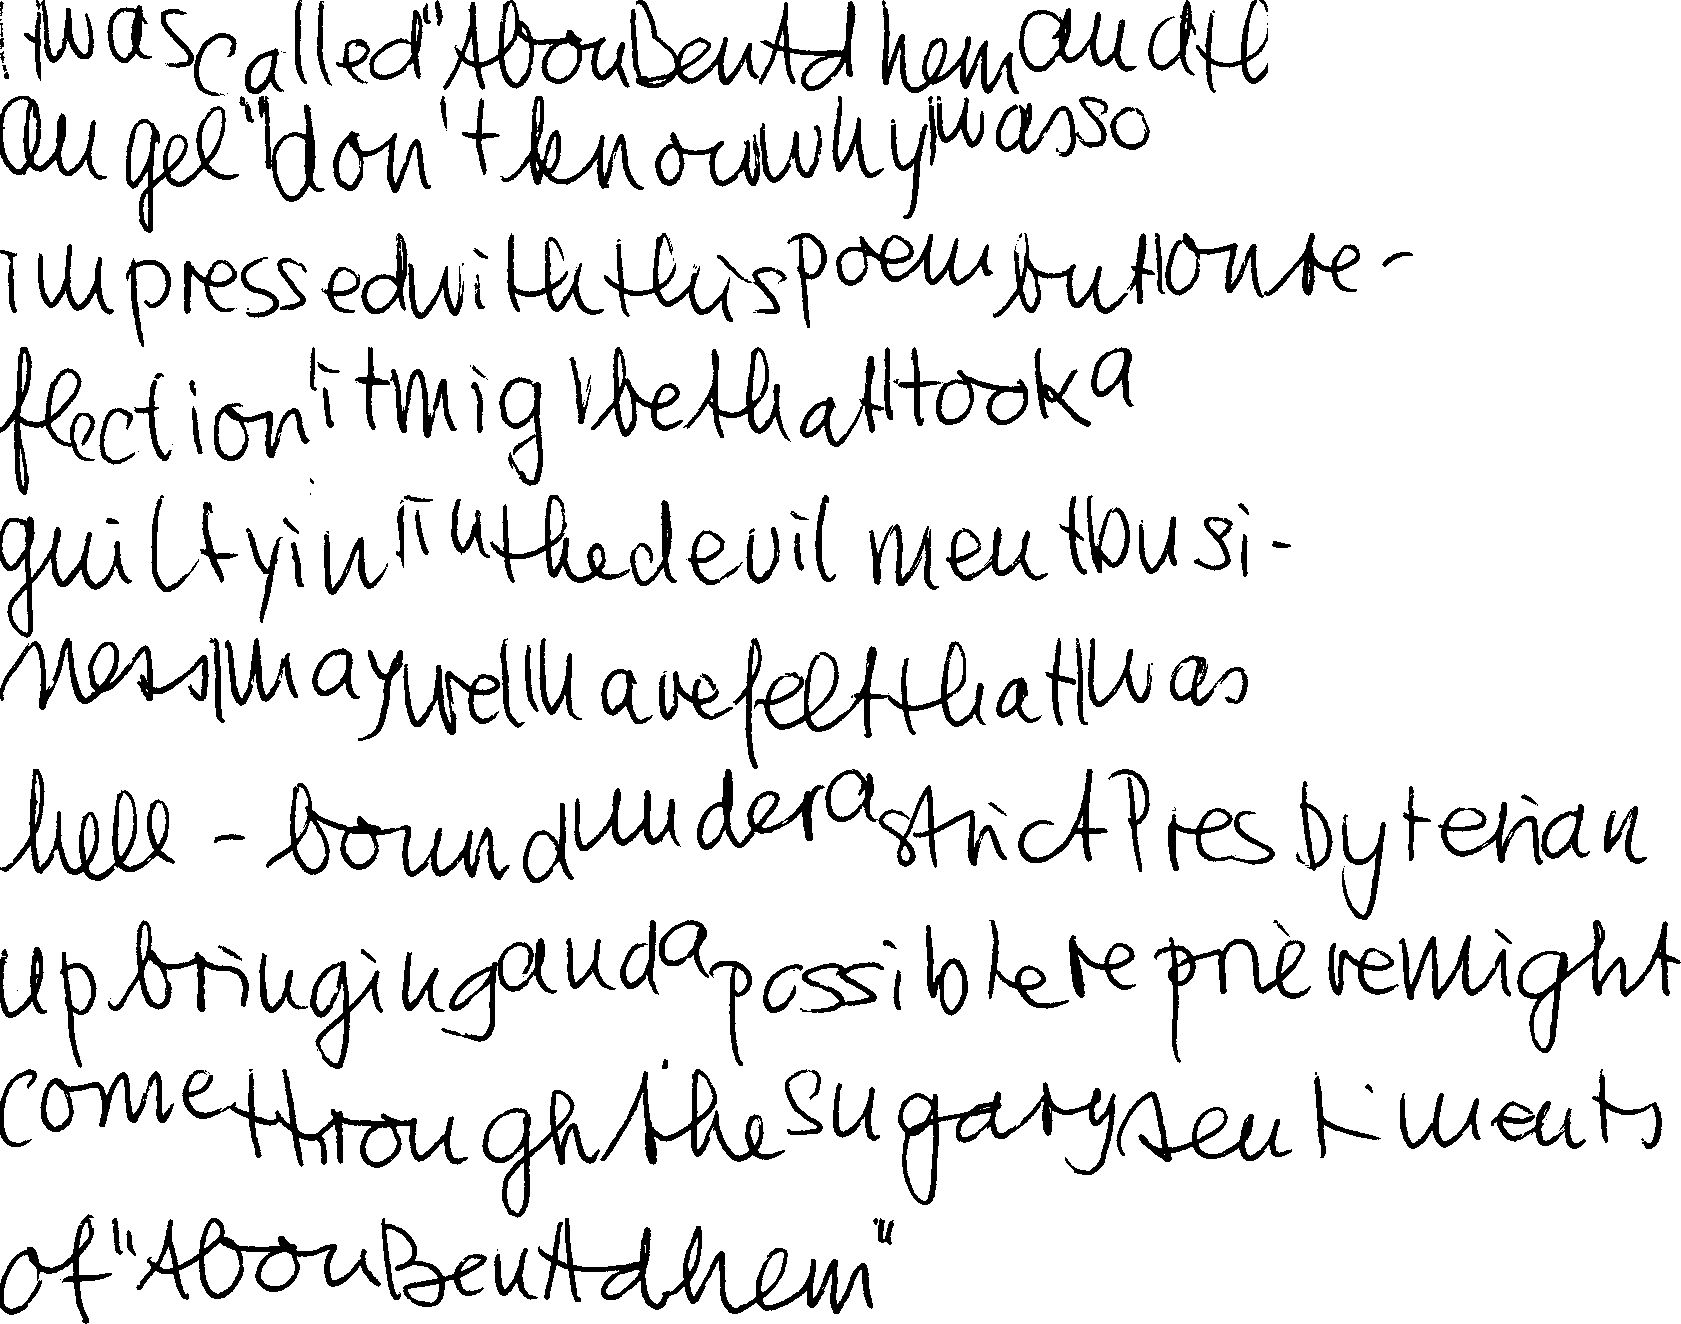 It was called "Abou Ben Adhem and th
Angel" I don't know why I was so
impressed with this poem but on re-
flection it mig be that I took a
guilty in in the devilment busi-
ness I may well have felt that I was
hell-bound under a strict Presbyterian
upbringing and a possible reprieve might
come through the sugary sentiments
of "Abou Ben Adhem"